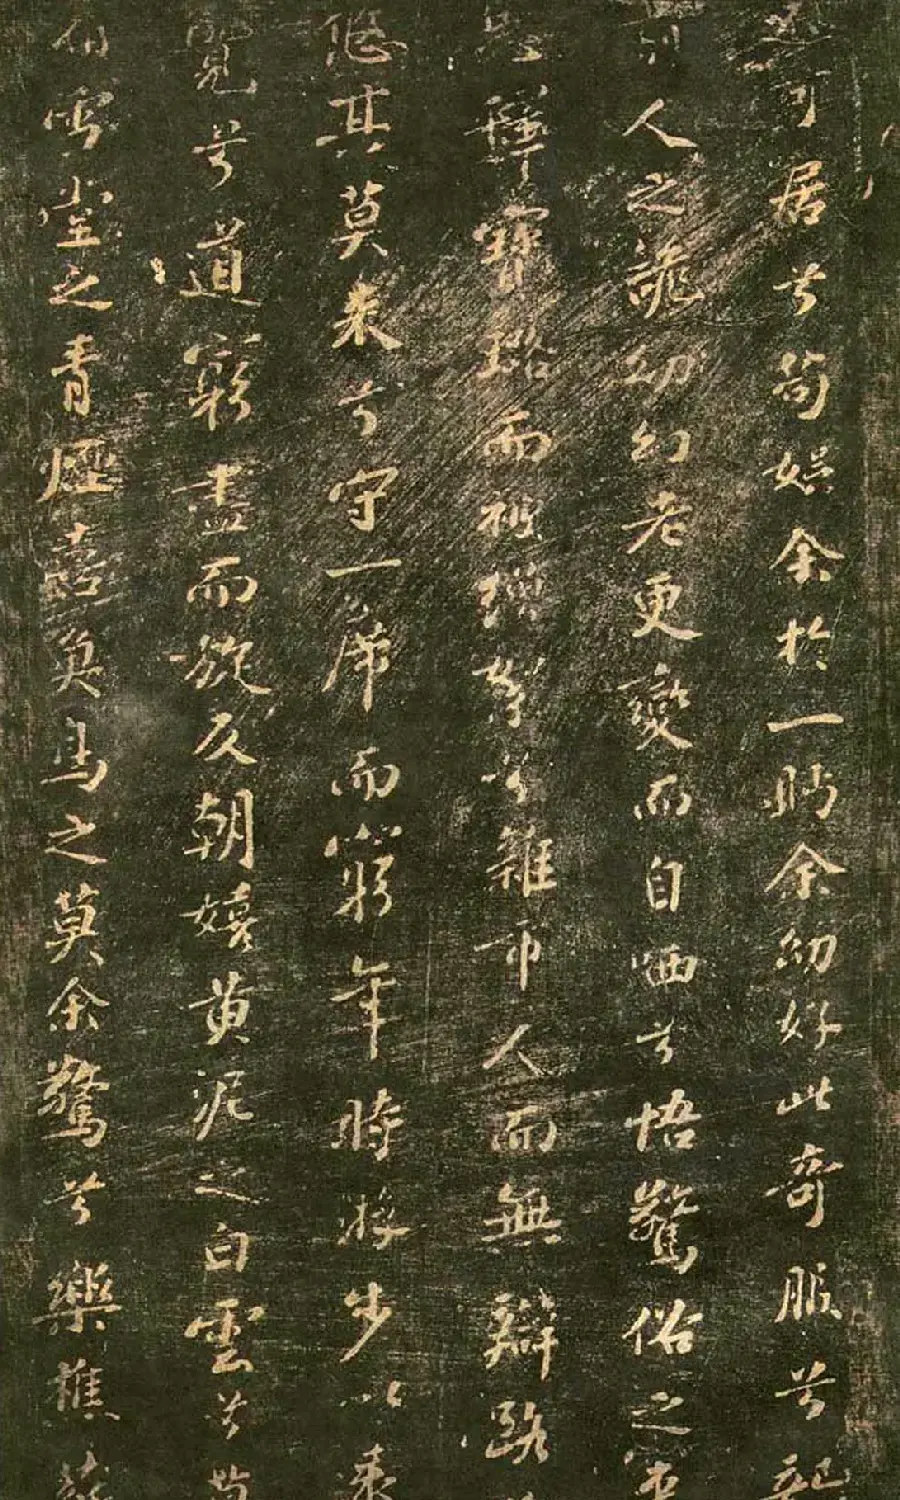 可居兮苟娛余於一眄余幼好此奇服兮
人之詭幼幻老更變而自哂兮悟驚俗之
釋寶璐而被繒絮兮雜市人而無辯路
悠其莫來兮守一席而窮年時游步以
覽兮道窮盡而旋反朝嬉黃泥之白雲兮
雪堂之青煙喜魚鳥之莫余驚兮樂樵